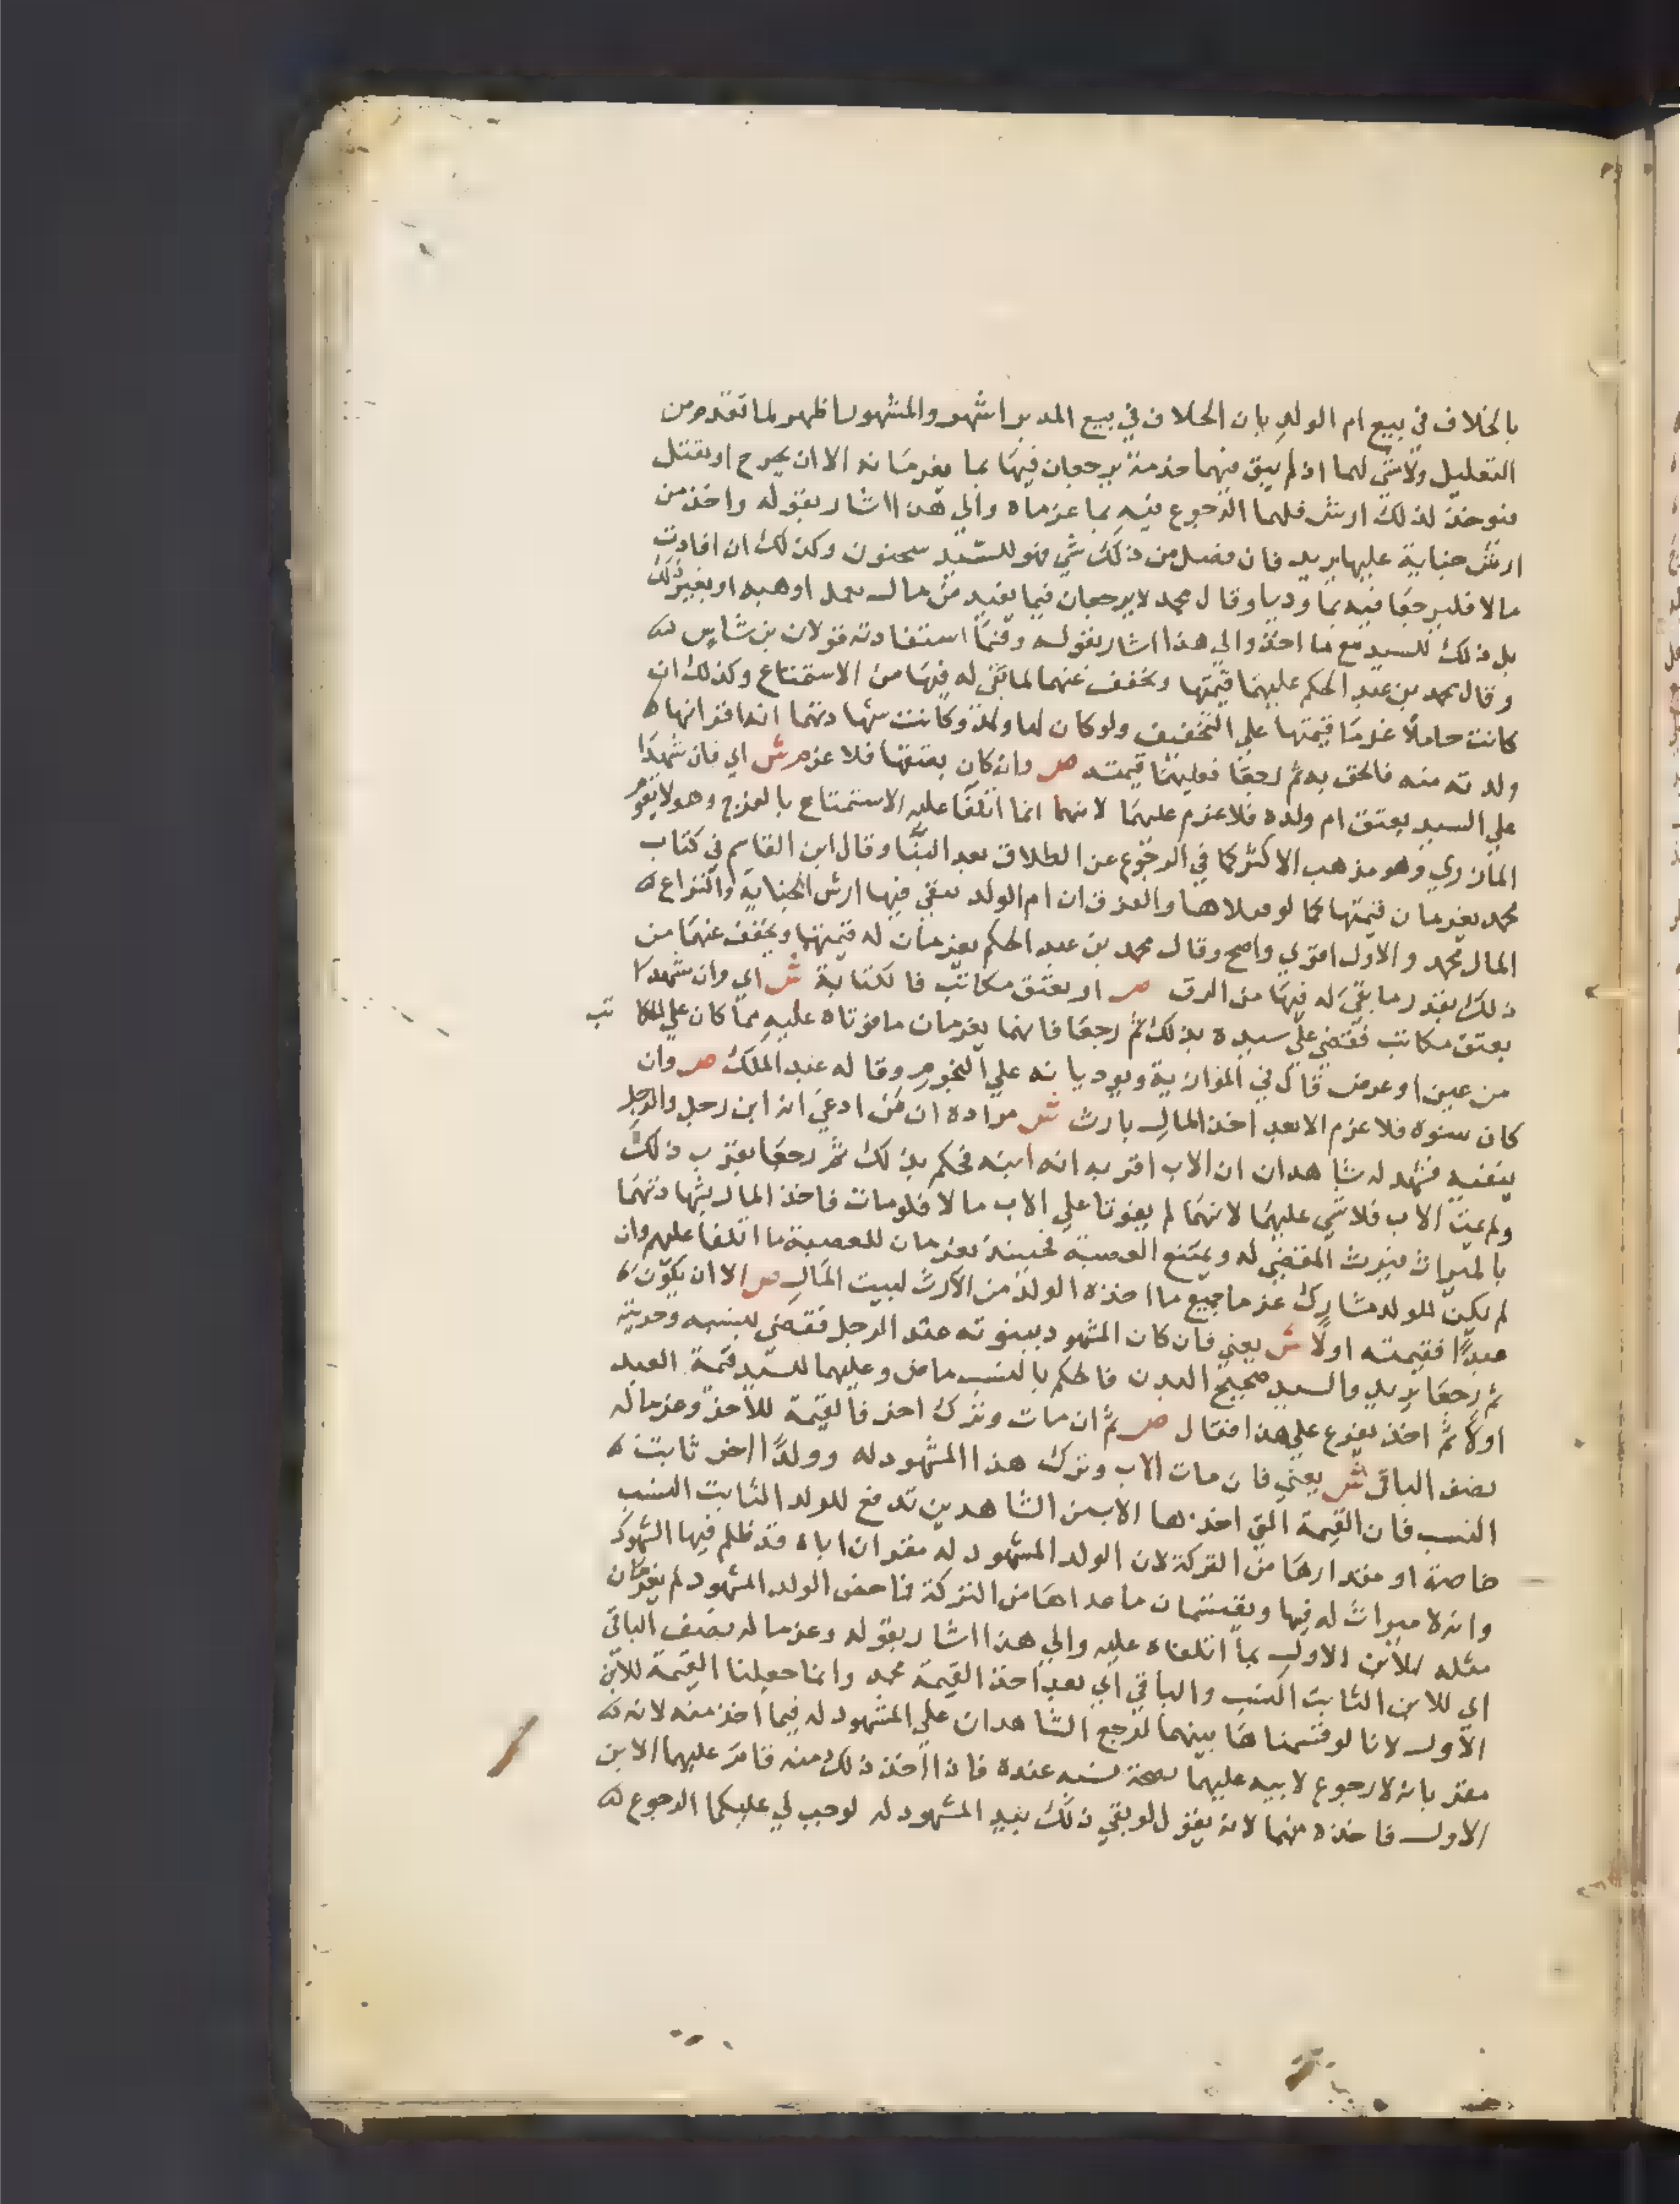 بالخلاف في بيع ام الولد بان الخلاف في بيع المدبر اشهر والمشهور اظهر لما تقدم من
التعليل ولا شي لهما اذ لم يبق فيهما خدمة يرجعان فيها بما يغرمانه الا ان يجرح او يقتل
فيوخذ لذلك ارش فلهما الرجوع فيه بما غرماه والي هذا اشار بقوله واخذ من
ارش جناية عليها يريد فان فضل من ذلك شي فهو للسيد سحنون وكذلك ان افادت
مالا فليرجعا فيه بما وديا وقال محمد لا يرجعان فيما يفيد من مال بعمل او هبة او بغير ذلك
بل ذلك للسيد مع ما اخذ والي هذا اشار بقوله وفيما استفادته قولان بن شاس
وقال محمد بن عبد الحكم عليهما قيمتها ويخفف عنهما لما بقي له فيها من الاستمتاع وكذلك ان
كانت حاملا غرما قيمتها علي التخفيف ولو كان لها ولد وكانت شهادتهما انه اقر انها
ولدته منه فالحق به ثم رجعا فعليهما قيمته ص وان كان بعتقها فلا غرم ش اي فان شهدا
علي السيد بعتق ام ولده فلا غرم عليهما لانهما انما اتلفا عليه الاستمتاع بالفرج وهو لا يقوم
المازري وهو مذهب الاكثر كما في الرجوع عن الطلاق بعد البنا وقال ابن القاسم في كتاب
محمد يغرمان قيمتها كما لو قتلاها والفرق ان ام الولد بقي فيها ارش الجناية وانتزاع
المال محمد والاول اقوي واصح وقال محمد بن عبد الحكم يغرمان له قيمتها ويخفف عنهما من
ذلك بقدر ما بقي له فيها من الرق ص او بعتق مكاتب فالكتابة ش اي وان شهدا
بعتق مكاتب فقضي علي سيده بذلك ثم رجعا فانهما يغرمان ما فوتاه عليه مما كان علي المكاتب
من عين او عرض قال في الموازية ويوديانه علي النجوم وقاله عبد الملك ص وان
كان ببنوة فلا غرم الا بعد اخذ المال بارث ش مراده ان من ادعي انه ابن رجل والرجل
ينفيه فشهد له شاهدان ان الاب اقر به انه ابنه فحكم بذلك ثم رجعا بقرب ذلك
ولم يمت الاب فلا شي عليهما لانهما لم يفوتا علي الاب مالا فلو مات فاخذ المال بشهادتهما
بالميراث فيرث المقضي له ويمنع العصبة فحينئذ يغرمان للعصبة ما اتلفا عليهم وان
لم يكن للولد مشارك غرما جميع ما اخذه الولد من الارث لبيت المال ص الا ان يكون
عبدا فقيمته اولا ش يعني فان كان المشهود ببنوته عبد الرجل فقضي بنسبه وحريته
ثم رجعا يريد والسيد صحيح البدن فالحكم بالنسب ماض وعليهما للسيد قيمة العبد
اولا ثم اخذ يفرع علي هذا فقال ص ثم ان مات وترك اخر فالقيمة للاخر وغرما له
نصف الباقي ش يعني فان مات الاب وترك هذا المشهود له وولدا اخر ثابت
النسب فان القيمة التي اخذها الاب من الشاهدين تدفع للولد الثابت النسب
خاصة او مقدارها من التركة لان الولد المشهود له مقر ان اباه قد ظلم فيها الشهود
وانه لا ميراث له فيها ويقتسمان ما عداها من التركة فما حض الولد المشهود لم يغرمان
مثله للابن الاول بما اتلفاه عليه والي هذا اشار بقوله وغرما له نصف الباقي
اي للابن الثابت النسب والباقي اي بعد اخذ القيمة محمد وانما جعلنا القيمة للابن
الاول لانا لو قسمناها بينهما لرجع الشاهدان علي المشهود له فيما اخذ منه لانه
مقر بانه لا رجوع لابيه عليهما لصحة نسبه عنده فاذا اخذ ذلك منه قام عليهما الابن
الاول فاخذه منهما لانه يقول لو بقي ذلك بيد المشهود له لوجب لي عليكما الرجوع